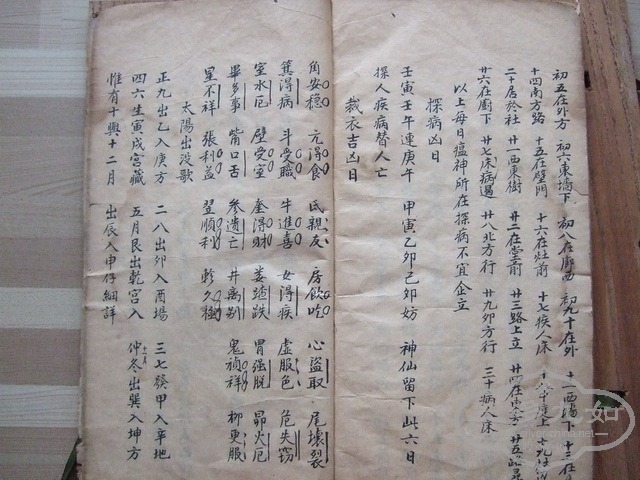 初五在外方 初六東墻下 初八在廚西 初九十在外 十一西墻下
十四南方路 十五在壁門 十六在灶前 十七疾人床
二十居於社 廿一西東樹 廿二在堂前 廿三路上立
廿六在廚下 廿七床病邊 廿八北方行 廿九卯方行 三十病人床
以上每日瘟神所在探病不宜企立
探病凶日
壬寅壬午連庚午 甲寅乙卯己卯妨 神仙留下此六日
探人疾病替人亡
裁衣吉凶日
角安穩 亢得食 氐親友 房飲 心盜取 尾壞裂
箕得病 斗受職 牛進喜 女得疾 虛服色 危失竊
室水厄 壁受室 奎得財 娄 胃強脫 昴火厄
畢多事 觜口舌 參遺亡 井离别 鬼禎祥 柳更服
星不祥 張利益 翌順利 軫久
太陽出沒歌
正九出乙入庚方 二八出卯入酉場 三七發甲入辛地
四六生寅戌宮藏 五月艮出乾宮入 仲冬出巽入坤方
惟有十與十二月 出辰入申仔細詳